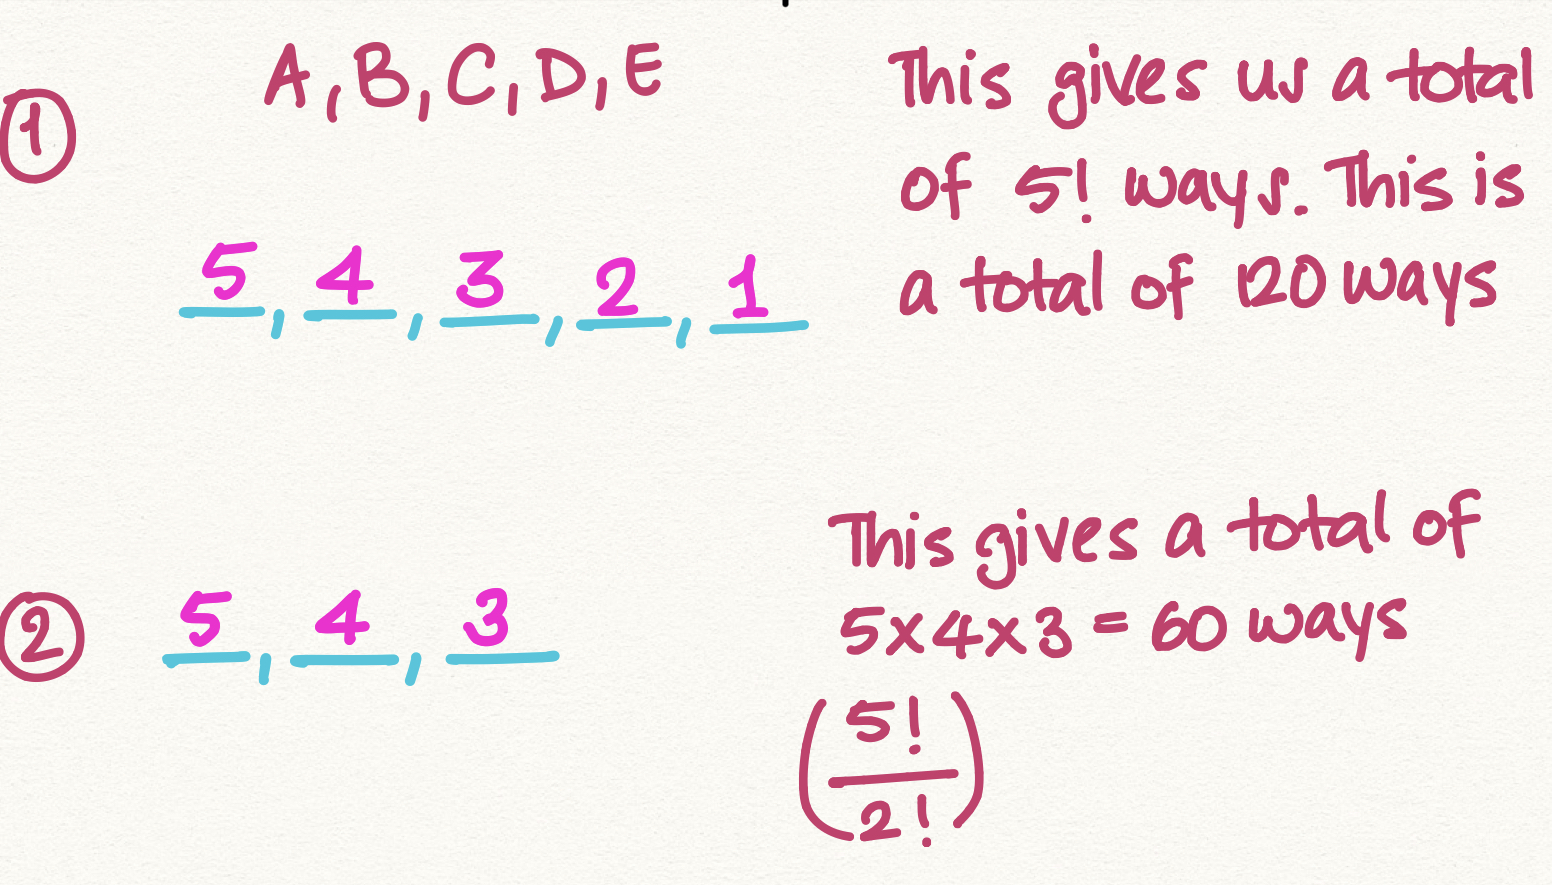 1
A, B, C, D, E
5, 4, 3, 2, 1
This gives us a total
of 5! ways. This is
a total of 120 ways
2
5, 4, 3
This gives a total of
5x4x3 = 60 ways
(5!
2!)